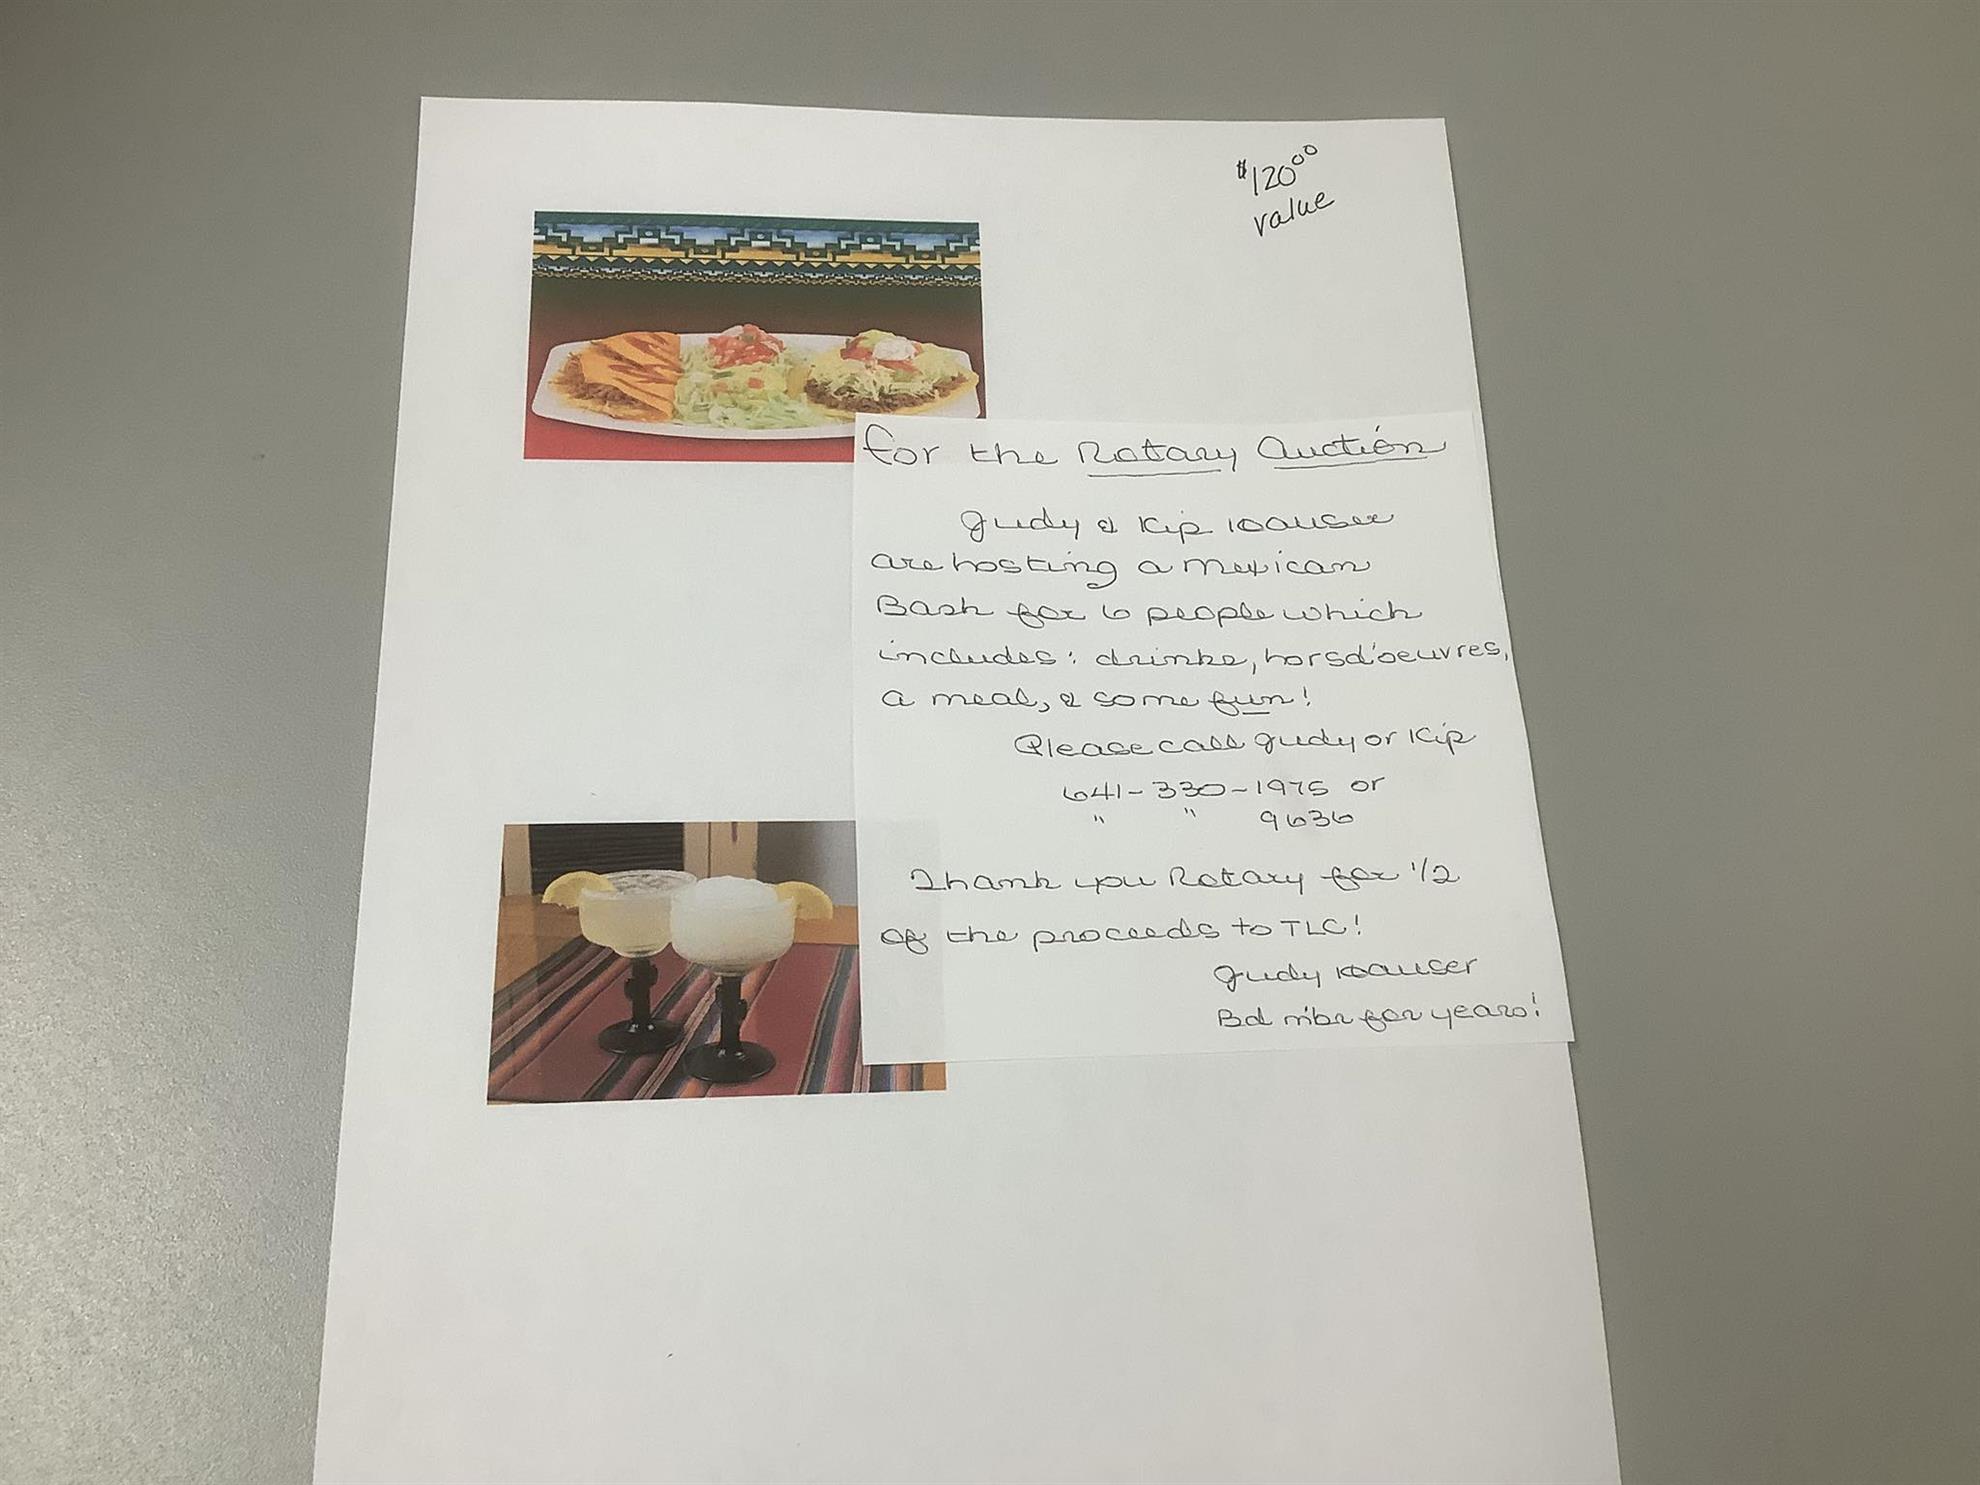 $120.00
value
for the Rotary Auction
Judy & Kip Kauser
are hosting a Mexican
Bash for 6 people which
includes: drinks, horsd'oeuvres,
a meal, & some fun!
Please call Judy or Kip
641-330-1975 or
" " 9636
Thank you Rotary for 1/2
of the proceeds to TLC!
Judy Kauser
Bd m'br for years!